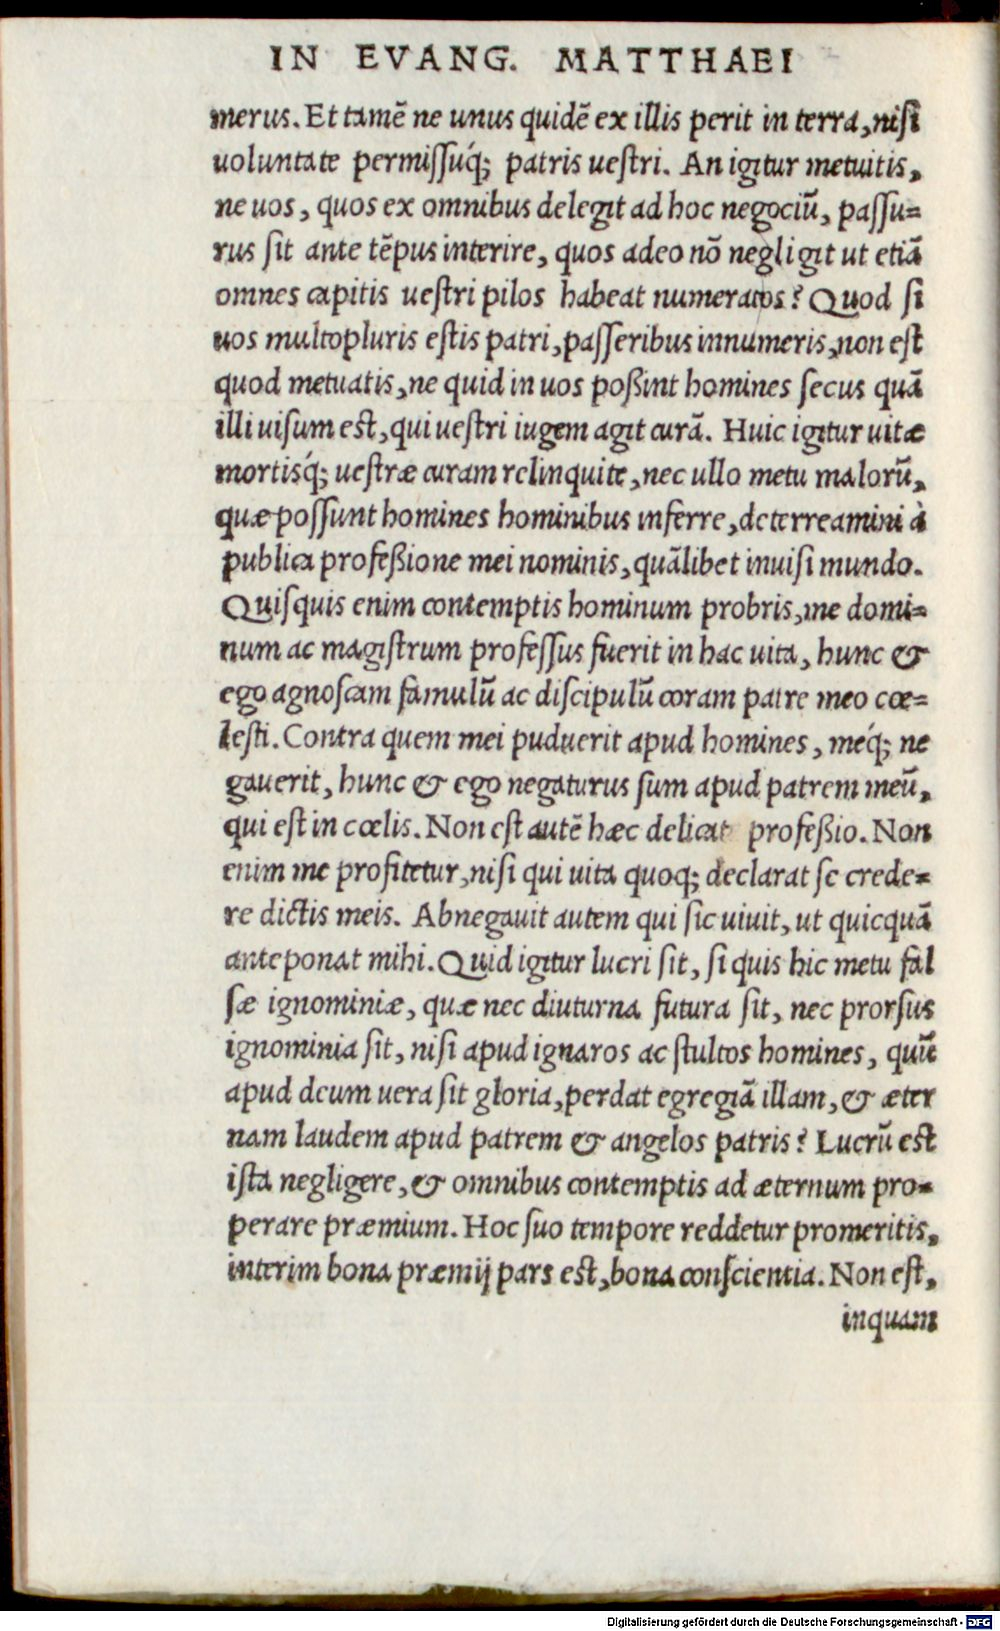 IN EVANG. MATTHAEI
merus. Et tamē ne unus quidē ex illis perit in terra, nisi
uoluntate permissuq́; patris uestri. An igitur metuitis,
ne uos, quos ex omnibus delegit ad hoc negociū, passu=
rus sit ante tēpus interire, quos adeo nō negligit ut etiā
omnes capitis uestri pilos habeat numeratos? Quod si
uos multo pluris estis patri, passeribus innumeris, non est
quod metuatis, ne quid in uos poßint homines secus quā
illi uisum est, qui uestri iugem agit curā. Huic igitur uitæ
mortisq́; uestræ curam relinquite, nec ullo metu malorū,
quæ possunt homines hominibus inferre, deterreamini à
publica profeßione mei nominis, quālibet inuisi mundo.
Quisquis enim contemptis hominum probris, me domi=
num ac magistrum professus fuerit in hac uita, hunc &
ego agnoscam famulū ac discipulū coram patre meo cœ=
lesti. Contra quem mei puduerit apud homines, meq́; ne
gauerit, hunc & ego negaturus sum apud patrem meū,
qui est in cœlis. Non est autē hæc delicat profeßio. Non
enim me profitetur, nisi qui uita quoq; declarat se crede=
re dictis meis. Abnegauit autem qui sic uiuit, ut quicquā
anteponat mihi. Quid igitur lucri sit, si quis hic metu fal
sæ ignominiæ, quæ nec diuturna futura sit, nec prorsus
ignominia sit, nisi apud ignaros ac stultos homines, quū
apud deum uera sit gloria, perdat egregiā illam, & æter
nam laudem apud patrem & angelos patris? Lucrū est
ista negligere, & omnibus contemptis ad æternum pro=
perare præmium. Hoc suo tempore reddetur promeritis,
interim bona præmij pars est, bona conscientia. Non est,
inquam
Digitalisierung gefördert durch die Deutsche Forschungsgemeinschaft - DFG